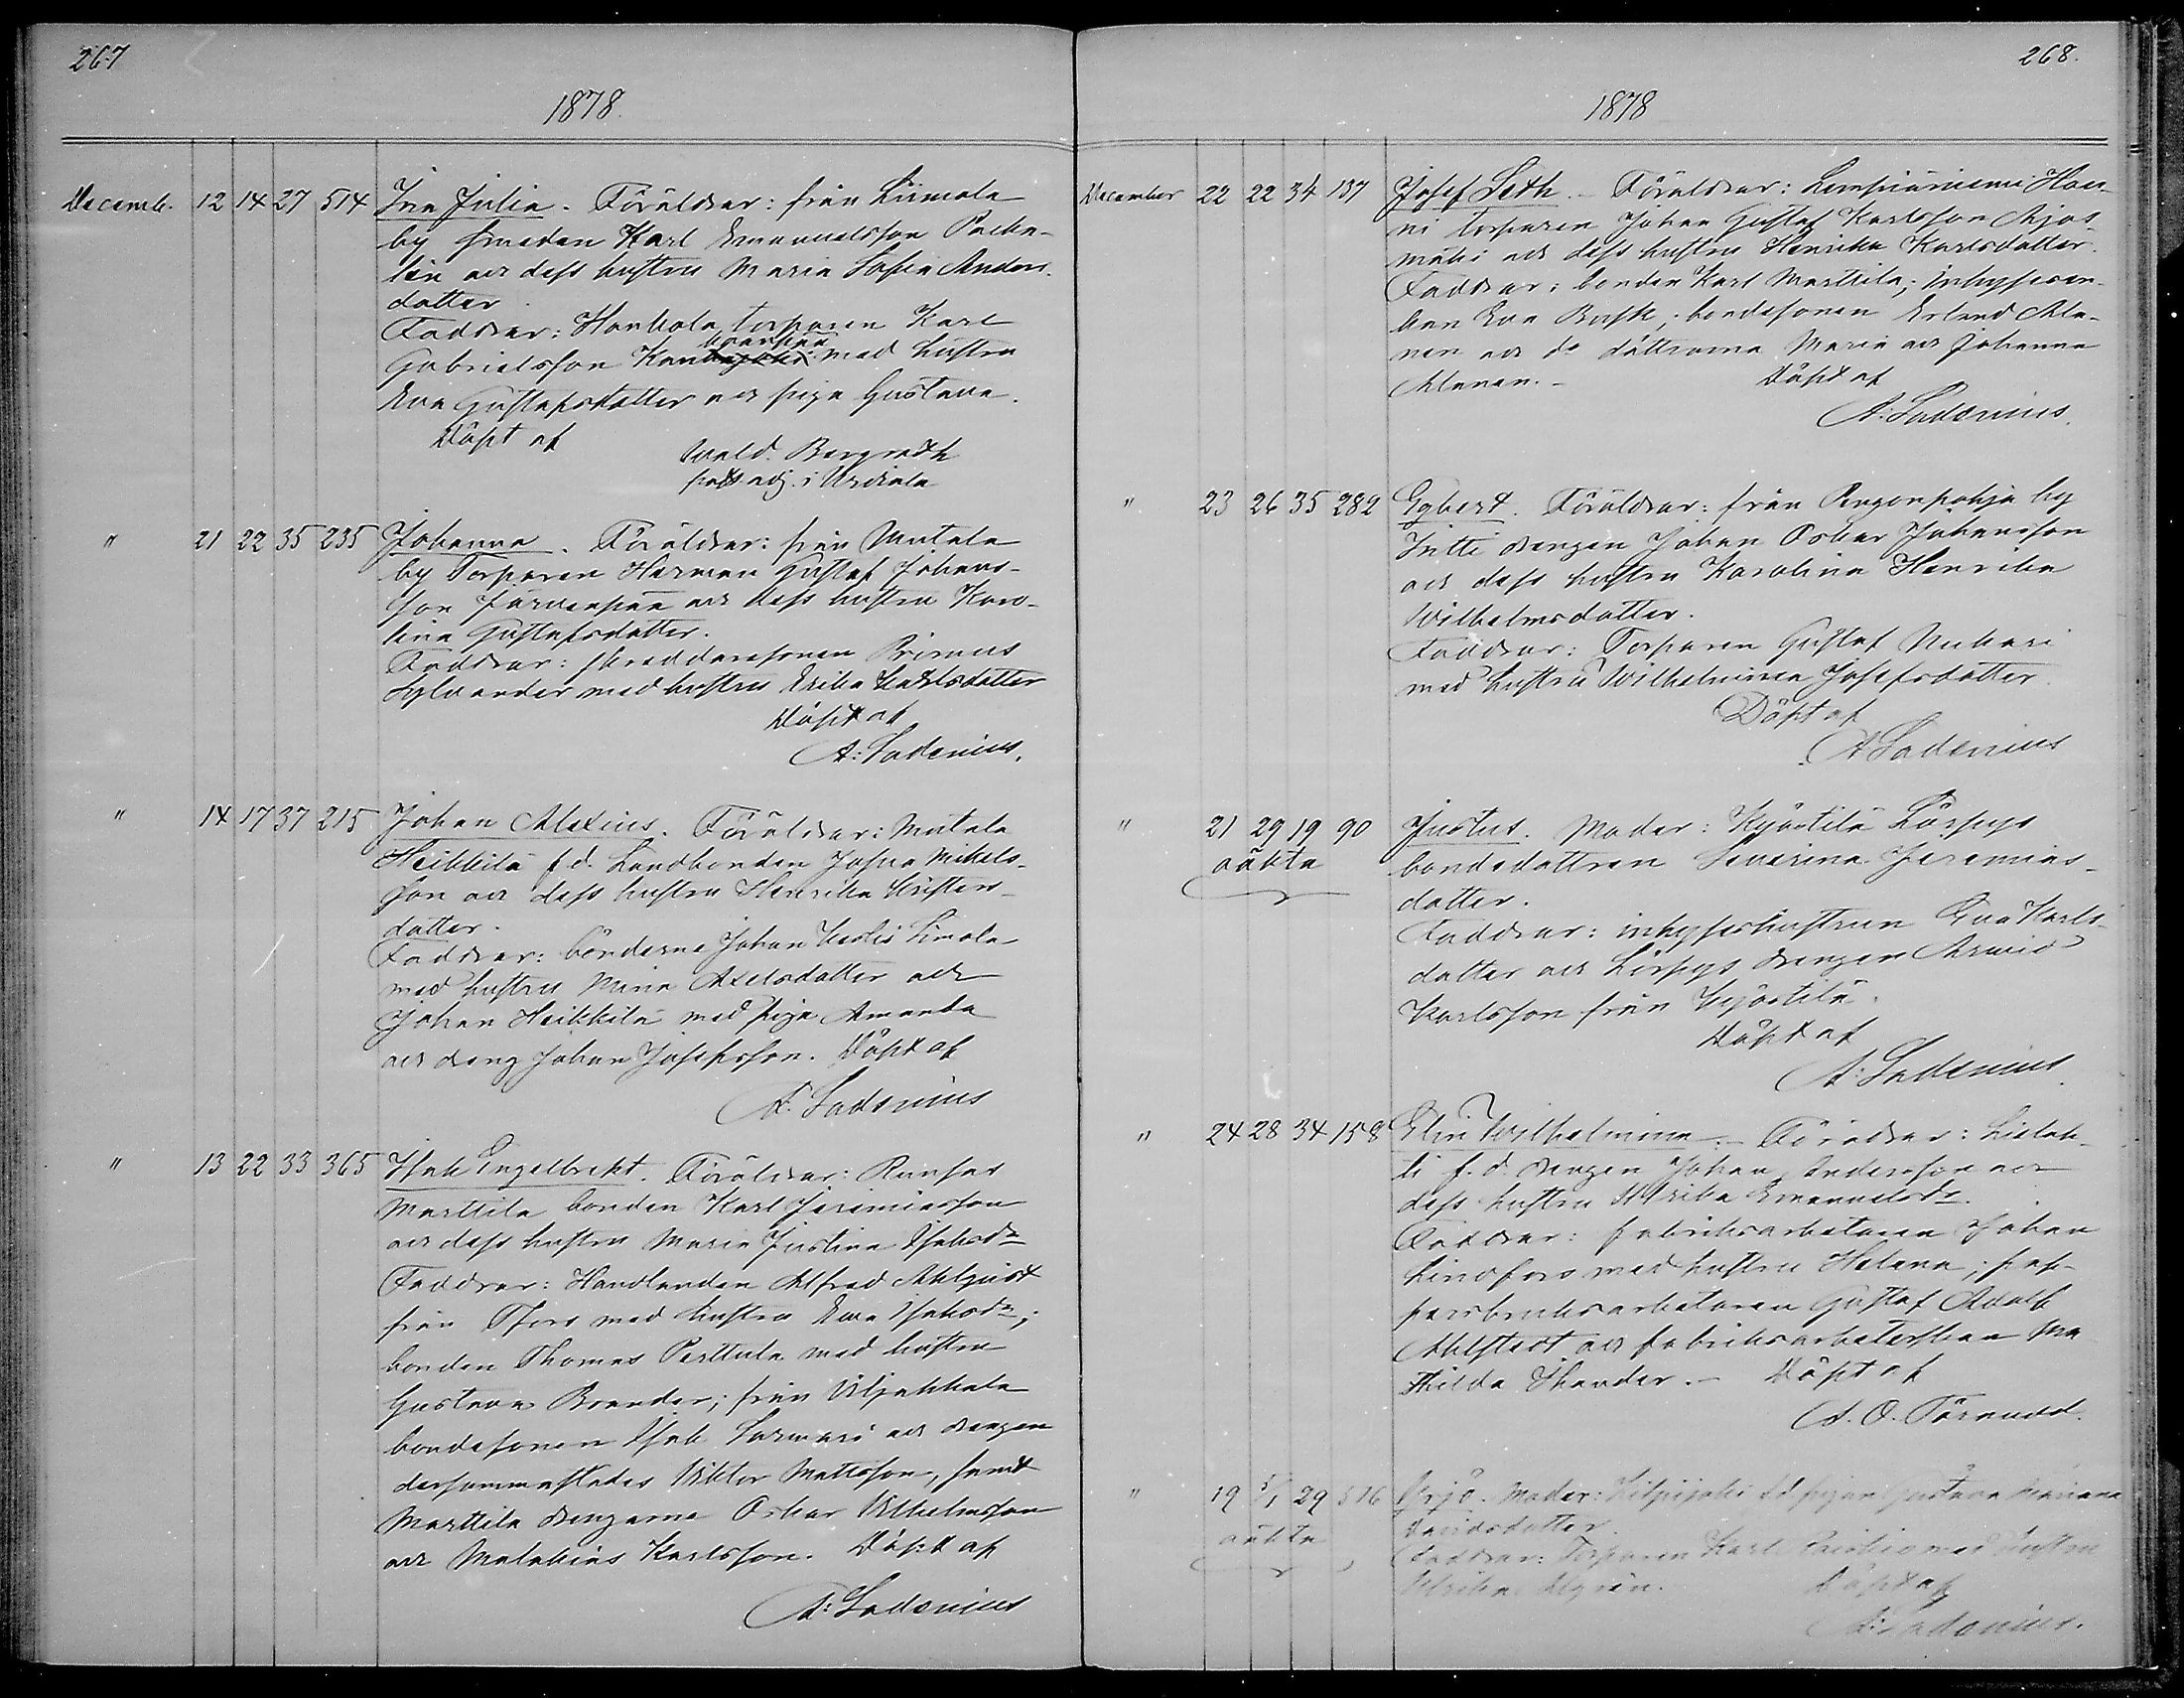 267
1878.
Decemb. 12 14 27 514 Ina Julia. Föräldrar: från Liimola
by smeden Karl Emanuelsson Packa-
lén och dess hustru Maria Sofia Anders-
dotter.
Faddrar: Honkola torparen Karl
Gabrielsson med hustru
Eva Gustafsdotter och piga Gustava.
Döpt af
Wald. Bergroth
past. adj. i Urdiala
" 21 22 35 235 Johanna. Föräldrar: från Mutala
by Torparen Herman Gustaf Johans-
son Järvenpää och dess hustru Karo-
lina Gustafsdotter.
Faddrar: skräddaresonen Primus
Sylvander med hustru Erika Karlsdotter
Döpt af
A: Ladenius.
" 14 17 37 215 Johan Alexius. Föräldrar: Mutala
Heikkilä f. d. Landbonden Josua Mikels-
son och dess hustru Henrika Kristers-
dotter.
Faddrar: bönderna Johan Simola
med hustru Mina Axelsdotter och
Johan Heikkilä med piga Amanda
och dreng Johan Josefsson. Döpt af
A: Ladenius
" 13 22 33 365 Isak Engelbrekt. Föräldrar:
Marttila bonden Karl Jeremiasson
och dess hustru Maria Justina Isaksdr
Faddrar: Handlanden Alfred Ahlqvist
från Tfors med hustru Eva Isaksdr;
bonden Thomas Perttula med hustru
Gustava Brander; från Viljakkala
bondesonen Isak Sarmari och drengen
dersammastädes Viktor Mattsson, samt
Marttila drengarne Oskar Vilhelmsson
och Malakias Karlsson. Döpt af
A: Ladenius
268.
1878
December 22 22 34 137 Josef Seth. Föräldrar: Lempiäniemi Han-
ni torparen Johan Gustaf Karlsson Ajos-
mäki och dess hustru Henrika Karlsdotter.
Faddrar: bonden Karl Marttila; inhyseen-
kan Eva Bask; bondesonen Erland Ala-
nen och do döttrarna Maria och Johanna
Alanen. Döpt af
A: Ladenius.
" 23 26 35 282 Egbert. Föräldrar: från Pengonpohja by
Jutti drengen Johan Oskar Johansson
och dess hustru Karolina Henrika
Wilhelmsdotter.
Faddrar: Torparen Gustaf Nuhari
med hustru Wilhelmina Josefsdotter.
Döpt af
A Ladenius
" 21 29 19 90 Justus. Moder: Kyöstilä Lörpys
oäkta bondedottren Severina Jeremias-
dotter.
Faddrar: inhyseshustrun Eva Karls-
dotter och Lörpys drengen Arvid
Karlsson från Kyöstilä.
Döpt af
A: Ladenius.
" 24 28 34 158 Elin Wilhelmina. Föräldrar: Lielah-
ti f. d. drengen Johan Andersson och
dess hustru Ulrika Emanuelsdr.
Faddrar: fabriksarbetaren Johan
Lindfors med hustru Helena; pap-
persbruksarbetaren Gustaf Adolf
Ahlstedt och fabriksarbeterskan Ma
thilda Skander. Döpt af
A. O. Törnudd.
" 19 5/1 29 516 Yrjö. Moder: Kilpijoki f. d. pigan Gustava Mariana
oäkta Davidsdotter.
Faddrar: Torparen Karl med hustru
Ulrika Algrén. Döpt af
A: Ladenius.